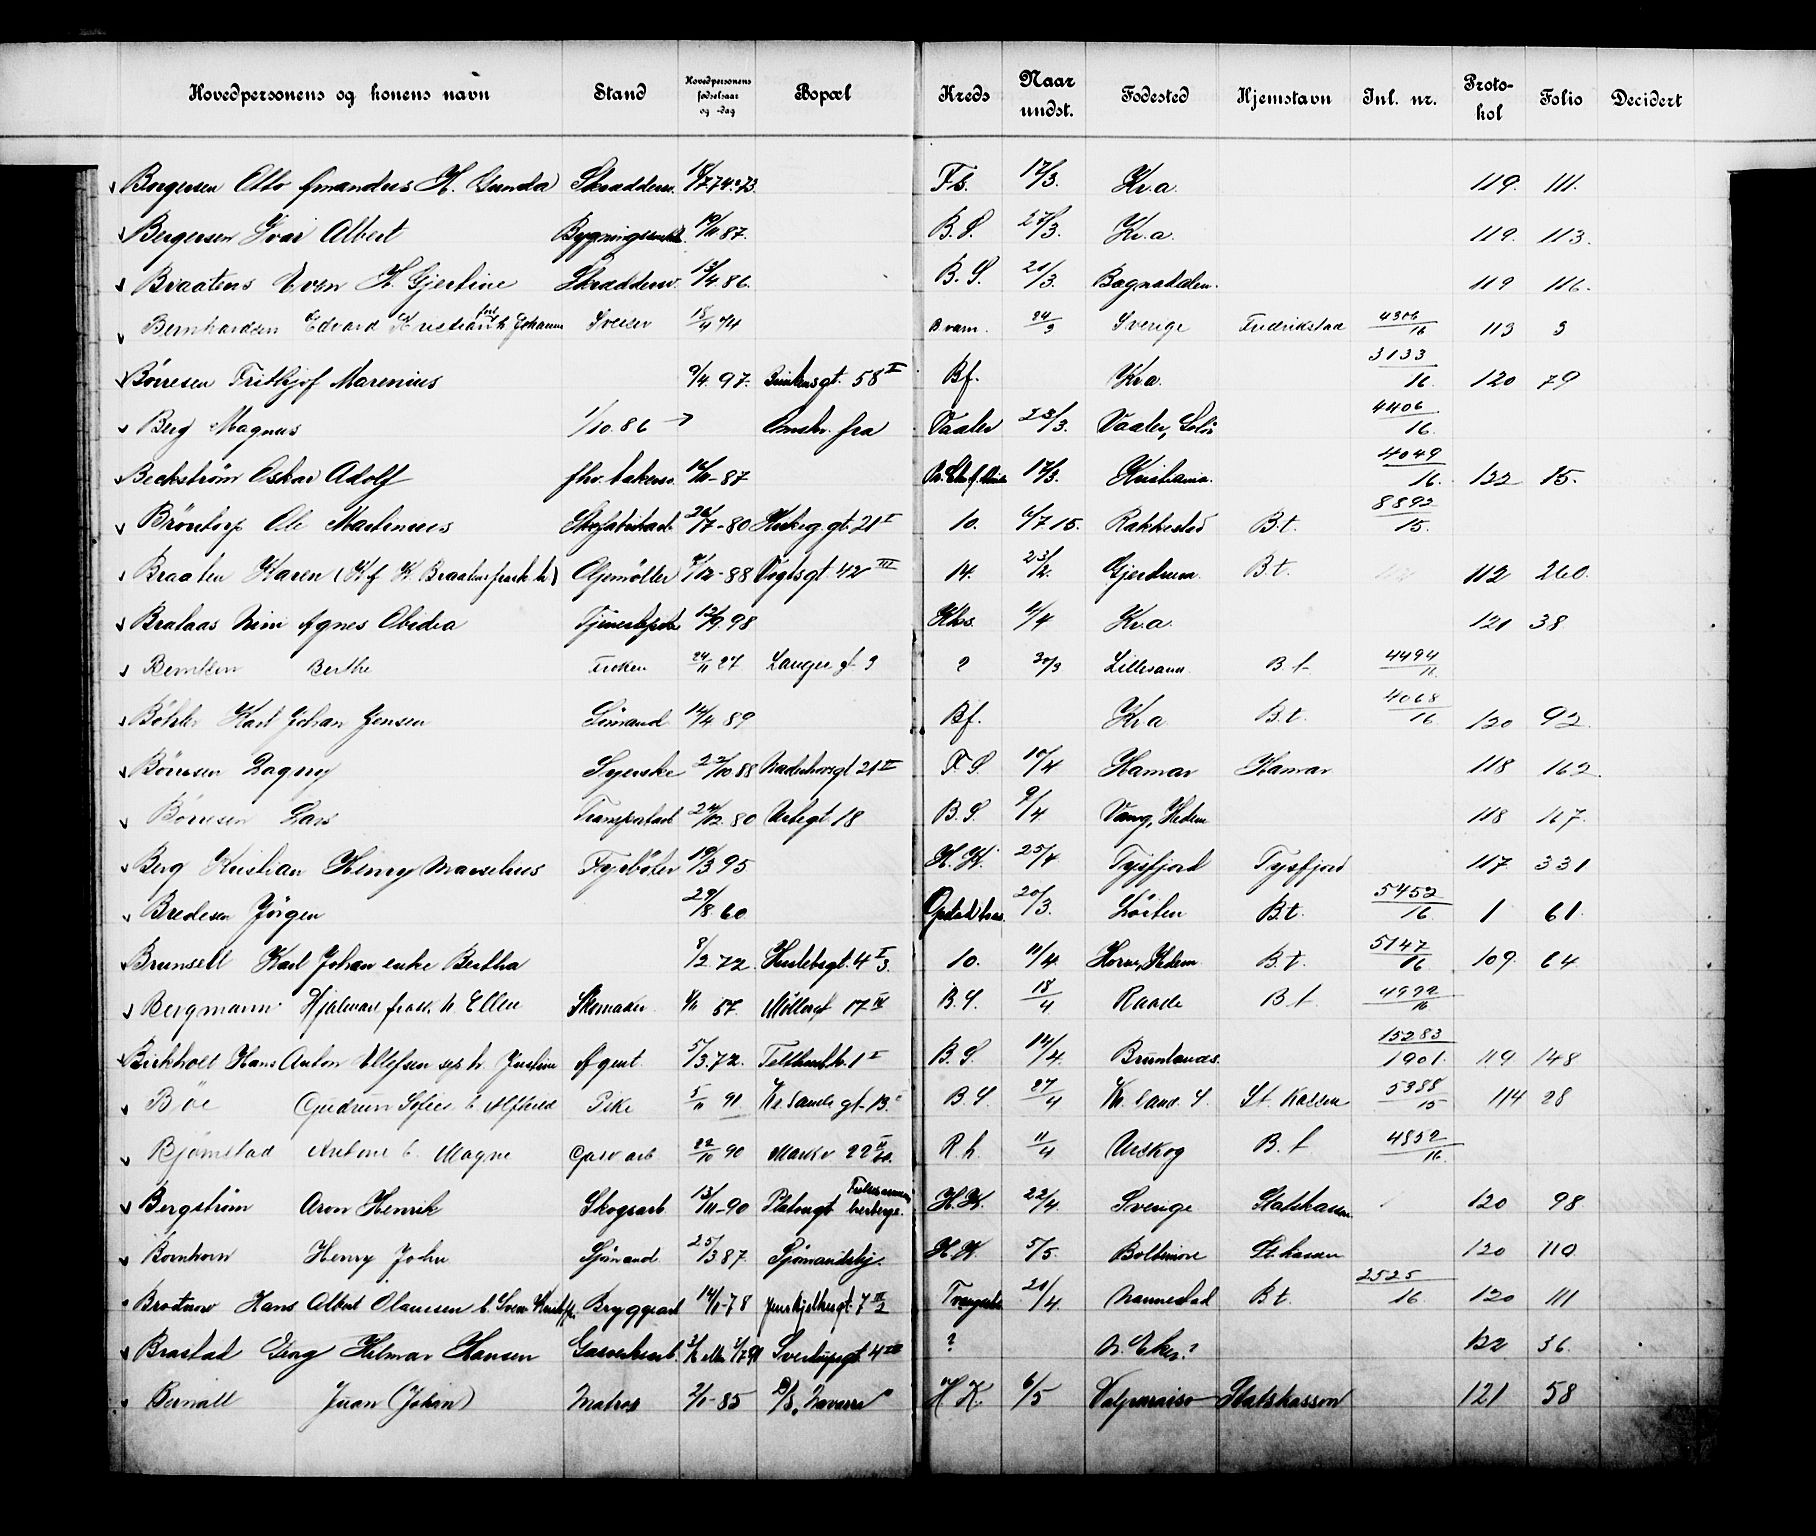 Hovedpersonens og konens navn Stand Hovedpersonens fødselsaar og -dag Bopæl Kreds Naar undst. Fødested Hjemstavn Inl. nr. Protokol Folio Decidert
Borgersen Otto Amandus H. Gunda Skræddersv. 18/7 74 73 F.S. 17/3. Kr.a. 119. 111.
Bergersen Ivar Albert 19/11 87. B.S. 27/3. Kr.a. 119. 113.
Braatens Even H. Gjertine Skræddersv. 13/4 86. B.S. 21/3. 119 116.
Bernhardsen Edvard Kristian h. Johanne Sveiser 18/11 74 B varm. 24/3 Sverige Fredrikstad 4306/16 113 3
Børresen Frithjof Marenius 9/4 97. 58 II Bf. Kr.a. 3133/16. 120 79
Berg Magnus 1/10. 86 fra Vaaler 23/3. Vaaler, Solør 4406/16.
Beckstrøm Oskar Adolf fhv. bakersv. 87 17/3. Kristiania. 4049/16. 122 15.
Brøntorp Ole Martinius 26/7-80 21 I 10. 6/7 15. Rakkestad B.t. 8892/15.
Braaten Karen (H. f. K. Braaten frask. h.) Oljemøller 9/12-88 Vogtsgt 42 III 14. 23/2. Gjerdrum. B.t. 112 260.
Brataas Agnes Obidia 12/9. 98 Khs. 4/4 Kr.a. 121 38.
Berntsen Berthe 24/11 27 Langes gt 3 ? 30/3 Lillesand B.t. 4494/16.
Karl Johan Jensen Sømand 14/4 89 Bf. Kr.a B.t. 4068/16. 120 92.
Børresen Dagny Syerske 22/10 88 21 II F.S. 10/4 Hamar Hamar 118 162.
Børresen Lars Transportarb. 24/12. 80 Urtegt. 18 B.S. 9/4. Vang, Hedem 118 167.
Berg Kristian Henry Marselius Fyrbøter 19/3 95 H.K. 25/4 Tysfjord Tysfjord 117 331
Bredesen Jørgen 29/8 60. 20/3. Løiten B.t. 5452/16. 1 61.
Brunsell Karl Johan enke Bertha 8/2. 72. 4 I 10. 11/4. B.t. 5147/16. 109. 64.
Bergmann Hjalmar frask. h. Ellen Skomaker 57. Møllergt 17 IV B.S. 18/4 Raade B.t. 4992/16
Birkholt Hans Anton Ellefsen sep. h. Justine Agent 5/3. 72. 1 I B.S. 14/4. Brunlanes. 15283/1901. 119. 148.
Bøe Gudrun Sofie b. Alfhild Pike 5/11 91 Kr. sands gt. 13. B.S. 27/4 Kr. sand. S. St. kassen 5388/15 114 28
Bjørnstad Antone b. Magne Garv. arb. 22/10 90 Markv. 22 II R.h. 11/4 Urskog B.t. 4852/16.
Bergstrøm Aron Henrik Skogsarb 13/11-90 Platousgt Frelsesarmeens herberge. H.K. 22/4. Sverige Statskassen. 120 98.
Bornhorn Henry John Sjømand 25/3 87. Sjømandshj. H.K. 5/5. Boltimore St. kassen 120 110
Hans Albert Olaussen b. Sven Bryggearb 14/1-78 Jens Bjelkesgt. 7 III/2 21/4. Nannestad B.t. 2525/16. 120 111
Brastad Georg Hilmar Hansen Gasverksarb. Sverdrupsgt. 4 III ? N. Eker? 122 36.
Bernatt Juan (Johan) Matros 2/1-85 D/S „Navarra” H.K. 6/5 Valparaiso Statskassen 121 58